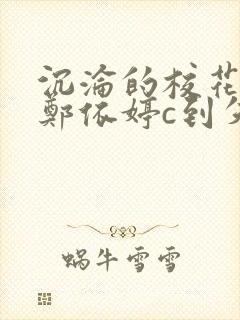 沉沦的校花
鄭依婷c到
蜗牛雪雪